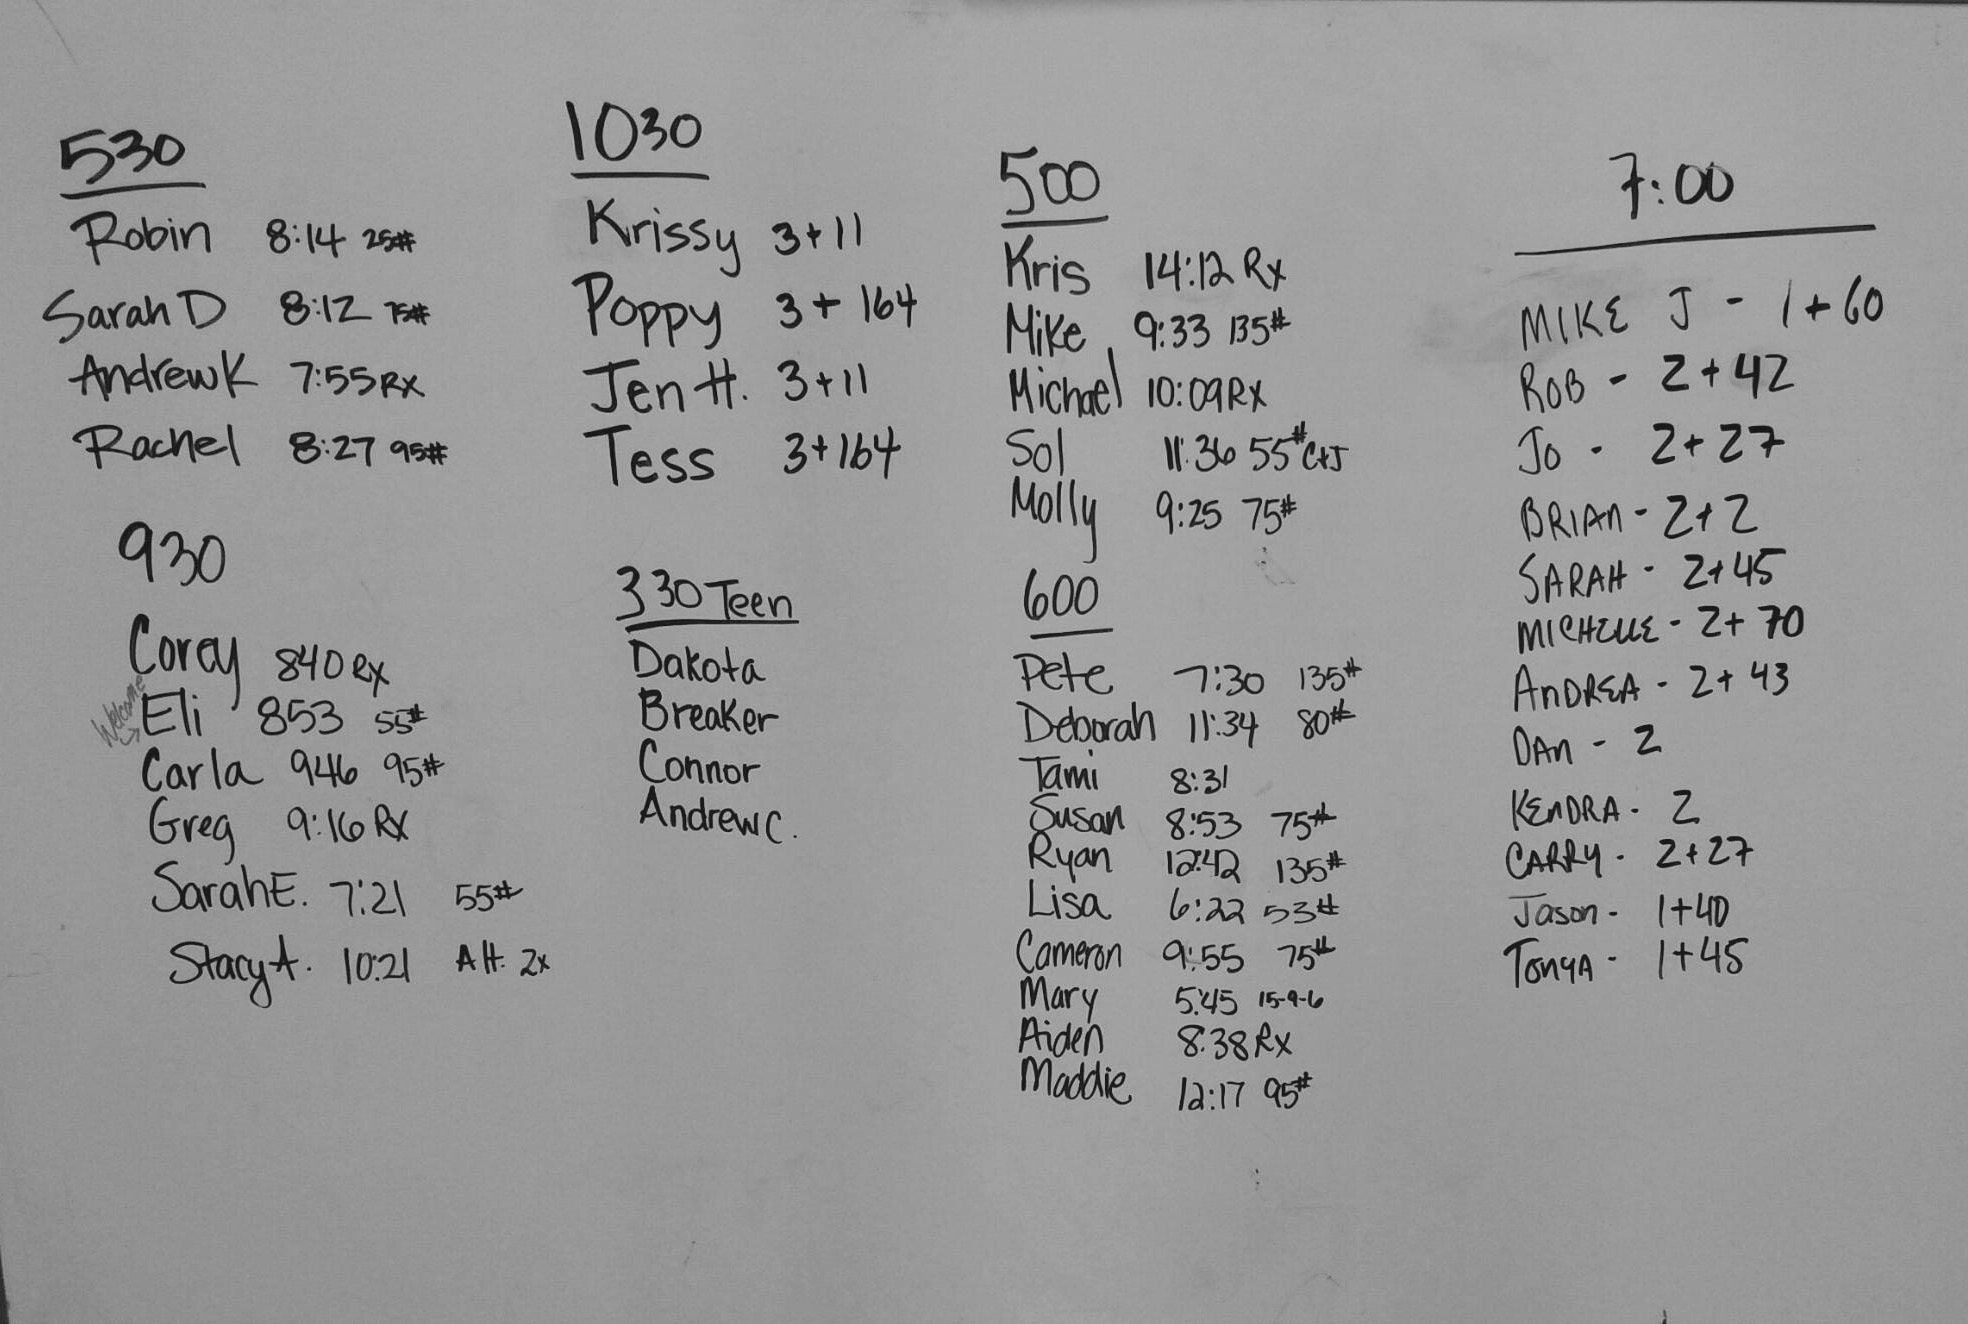 530
Robin 8:14 25#
Sarah D 8:12 75#
Andrew K 7:55 RX
Rachel 8:27 95#
930
Corey 840 RX
Welcome → Eli 853 55#
Carla 946 95#
Greg 9:16 RX
Sarah E. 7:21 55#
Stacy A. 10:21 Alt. 2x
1030
Krissy 3+11
Poppy 3+164
Jen H. 3+11
Tess 3+164
330 Teen
Dakota
Breaker
Connor
Andrew C.
500
Kris 14:12 Rx
Mike 9:33 135#
Michael 10:09 RX
Sol 11:36 55# C+J
Molly 9:25 75#
600
Pete 7:30 135#
Deborah 11:34 80#
Tami 8:31
Susan 8:53 75#
Ryan 12:42 135#
Lisa 6:22 53#
Cameron 9:55 75#
Mary 5:45 15-9-6
Aiden 8:38 RX
Maddie 12:17 95#
7:00
MIKE J - 1+60
ROB - 2+42
JO - 2+27
BRIAN - 2+2
SARAH - 2+45
MICHELLE - 2+70
ANDREA - 2+43
DAN - 2
KENDRA - 2
CARRY - 2+27
Jason - 1+40
TONYA - 1+45